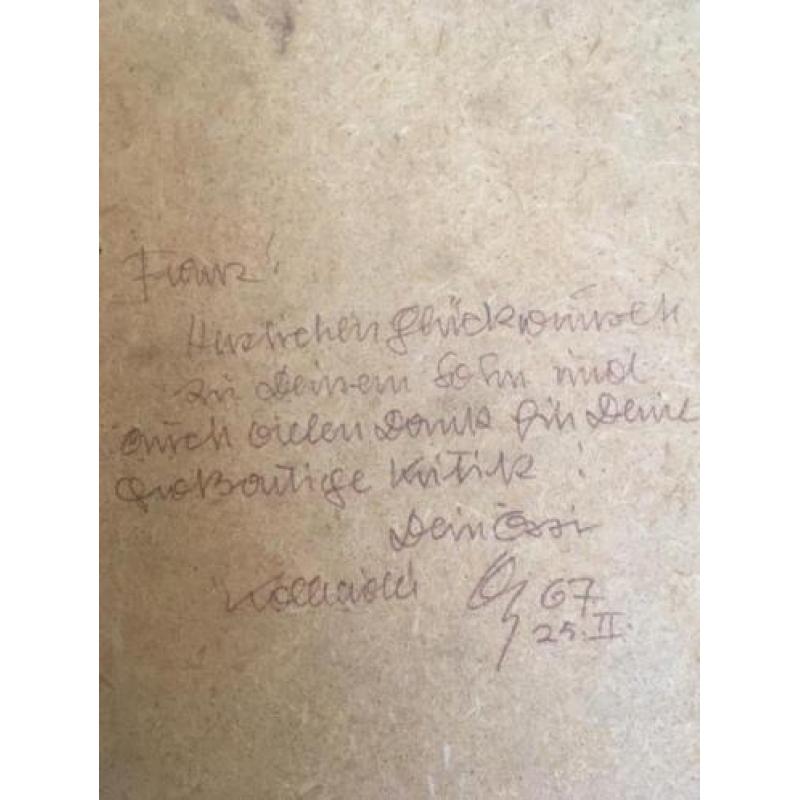 Franz!
Herzlichen Glückwunsch
zu Deinem Sohn und
auch vielen Dank für Deine
großartige Kritik!
Dein Ossi
67
25. II.